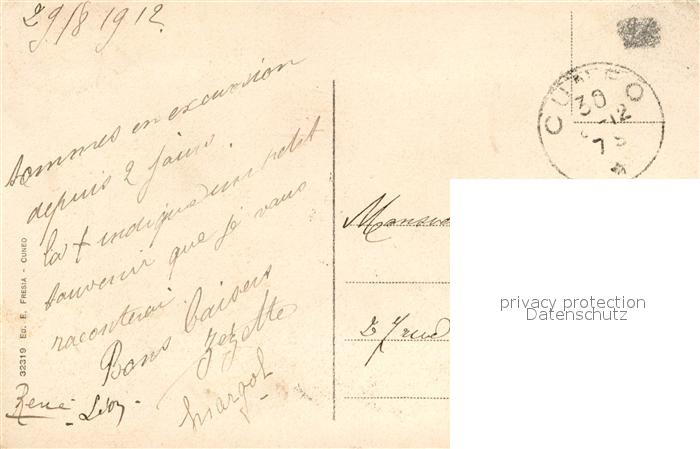 29/8 1912.
sommes en excursion
depuis 2 jours.
la + indique un petit
souvenir que je vous
raconterai.
Bons baisers
Zezette
Margot
René
Léon
32319 ED. E. FRESIA - CUNEO
CUNEO
30
-12
Monsieu
privacy protection
Datenschutz